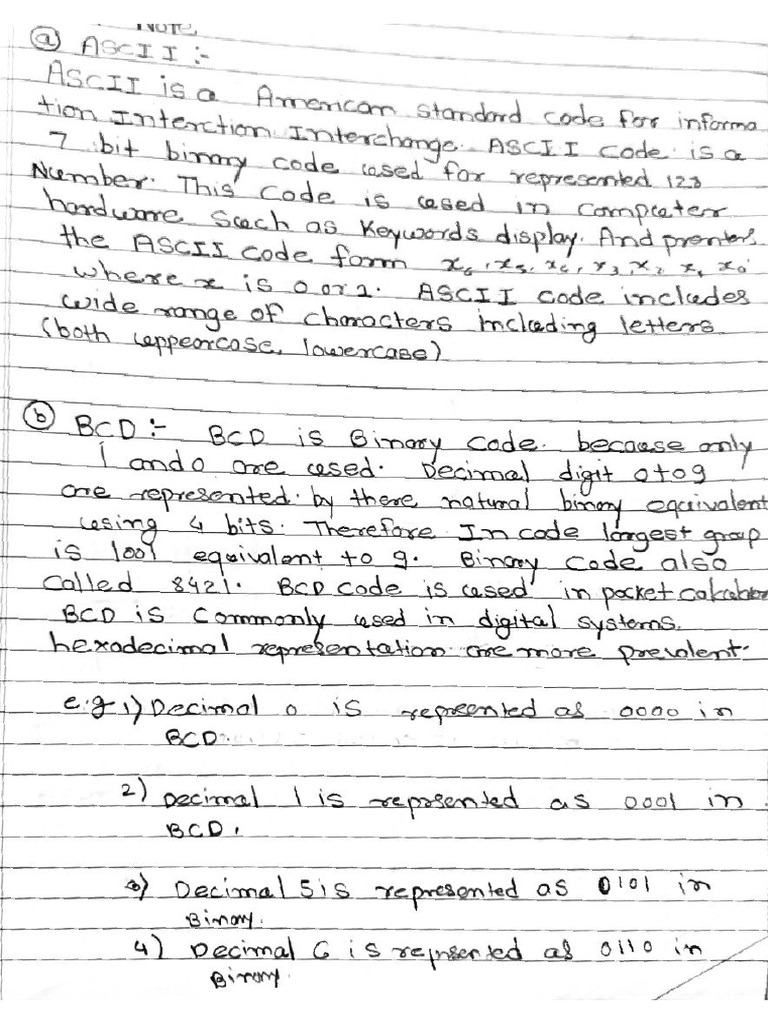 Note
(a) ASCII :-
ASCII is a American standard code for informa
tion Interction Interchange. ASCII code is a
7 bit binary code used for represented 128
Number. This code is used in computer
hardware such as keywords display. And prenters
the ASCII code form x6, x5, x4, x3, x2 x1 x0
where x is 0 or 1. ASCII code includes
wide range of characters including letters
(both uppearcase, lowercase)
(b) BCD :- BCD is Binary code. because only
1 and 0 are used. Decimal digit 0 to 9
are represented by there natural binary equivalent
using 4 bits. Therefore In code largest group
is 1001 equivalent to 9. Binary code also
called 8421. BCD code is used in pocket
BCD is commonly used in digital systems.
hexadecimal representation are more prevalent.
e.g 1) Decimal 0 is represented as 0000 in
BCD.
2) Decimal 1 is represented as 0001 in
BCD.
3) Decimal 5 is represented as 0101 in
Binary.
4) Decimal 6 is reprsented as 0110 in
Binary.